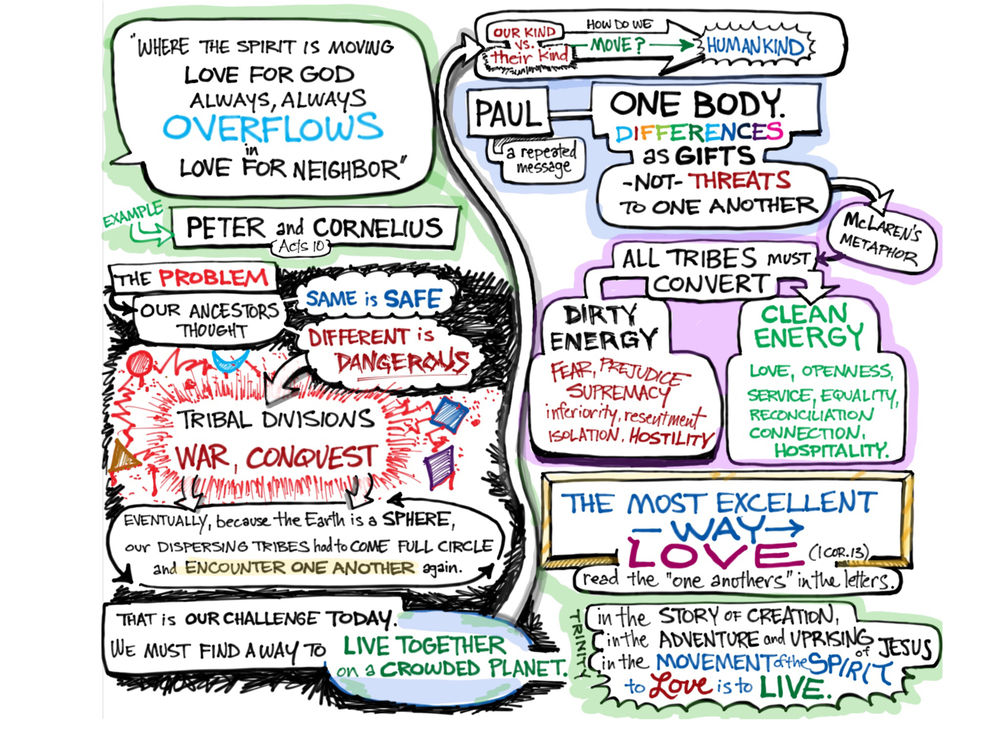 "WHERE THE SPIRIT IS MOVING
LOVE FOR GOD
ALWAYS, ALWAYS
OVERFLOWS
in
LOVE FOR NEIGHBOR"
EXAMPLE
PETER and CORNELIUS
Acts 10
THE PROBLEM
OUR ANCESTORS
THOUGHT
SAME is SAFE
DIFFERENT is
DANGEROUS
TRIBAL DIVISIONS
WAR, CONQUEST
EVENTUALLY, because the Earth is a SPHERE,
our DISPERSING TRIBES had to COME FULL CIRCLE
and ENCOUNTER ONE ANOTHER again.
THAT is OUR CHALLENGE TODAY.
WE MUST FIND A WAY TO
LIVE TOGETHER
on a CROWDED PLANET.
OUR KIND
VS.
their kind
HOW DO WE
MOVE?
HUMANKIND
PAUL
a repeated
message
ONE BODY.
DIFFERENCES
as GIFTS
-NOT- THREATS
TO ONE ANOTHER
McLAREN'S
METAPHOR
ALL TRIBES MUST
CONVERT
DIRTY
ENERGY
FEAR, PREJUDICE
SUPREMACY
inferiority, resentment
ISOLATION, HOSTILITY
CLEAN
ENERGY
LOVE, OPENNESS,
SERVICE, EQUALITY,
RECONCILIATION
CONNECTION,
HOSPITALITY.
THE MOST EXCELLENT
WAY
LOVE (1 COR. 13)
read the "one anothers" in the letters.
TRINITY
in the STORY OF CREATION,
in the ADVENTURE and UPRISING of JESUS
in the MOVEMENT of the SPIRIT
to Love is to LIVE.